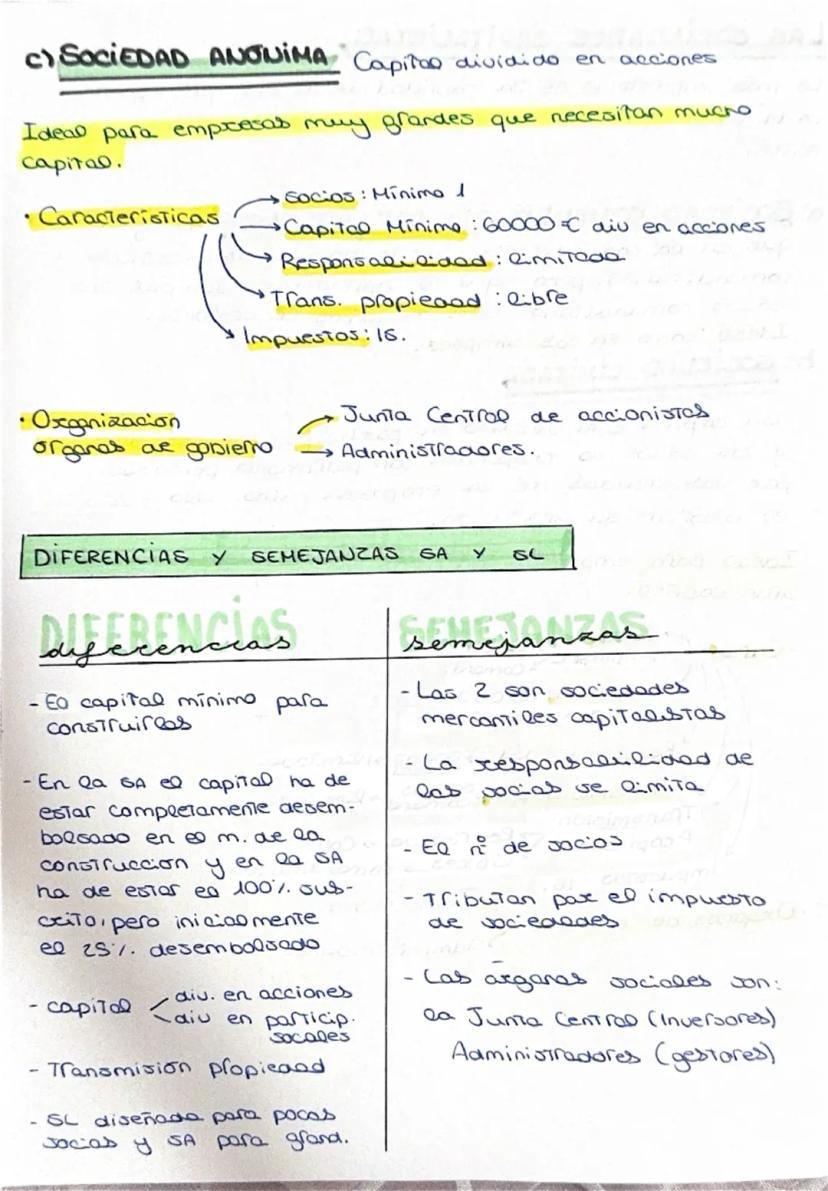 c) SOCIEDAD ANÓNIMA. Capital dividido en acciones
Ideal para empresas muy grandes que necesitan mucho
capital.
· Características
→ Socios: Mínimo 1
→ Capital Mínimo: 60000 € div en acciones
→ Responsabilidad: limitada
→ Trans. propiedad: libre
→ Impuestos: IS.
· Organización
órganos de gobierno
→ Junta Central de accionistas
→ Administradores.
DIFERENCIAS Y SEMEJANZAS SA Y SL
DIFERENCIAS
diferencias
- El capital mínimo para
construirlas
- En la SA el capital ha de
estar completamente desem-
bolsado en el m. de la
construccion y en la SA
ha de estar el 100% sus-
crito, pero inicialmente
el 25% desembolsado
- capital
div. en acciones
div en particip.
socales
- Transmisión propiedad
- SL diseñada para pocos
socios y SA para grand.
SEMEJANZAS
semejanzas
- Las 2 son sociedades
mercantiles capitalistas
- La responsabilidad de
los socios se limita
- El nº de socios
- Tributan por el impuesto
de sociedades
- Los órganos sociales son:
la Junta Central (Inversores)
Administradores (gestores)